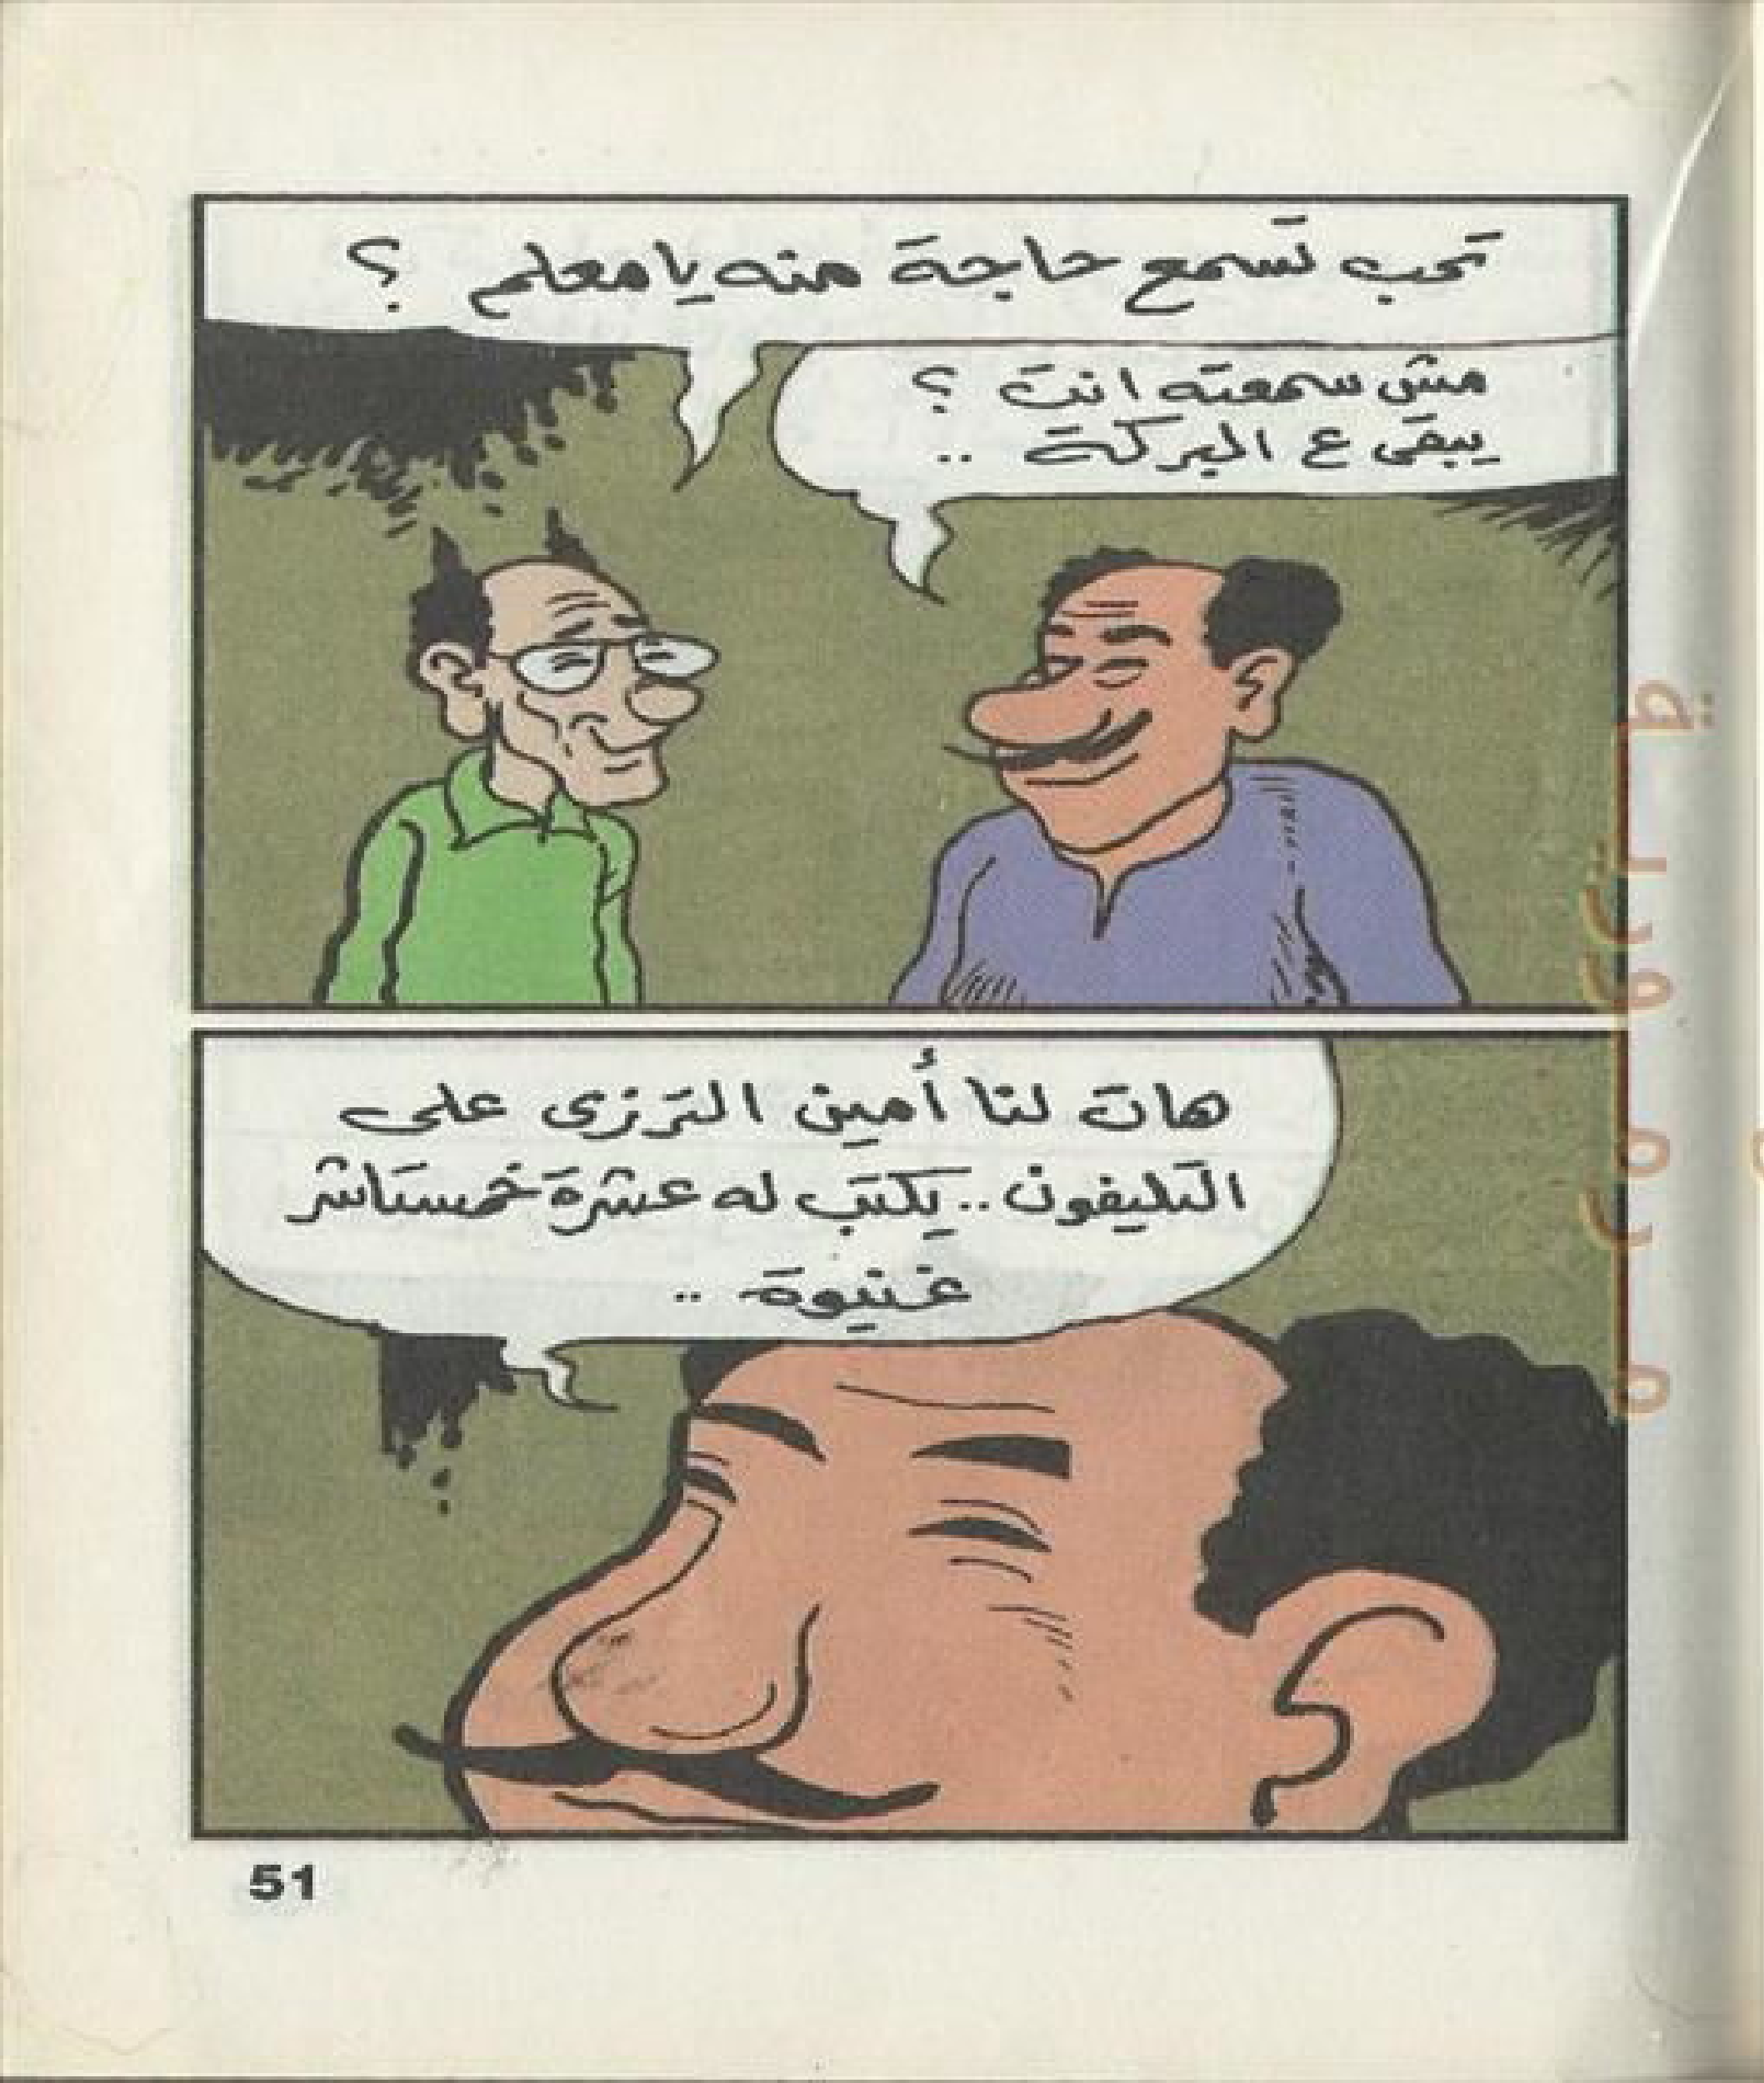 تحب تسمع حاجة منه يا معلم ؟
مش سمعته انت ؟
يبقى ع البركة ..
هات لنا أمين الترزى على
التليفون .. يكتب له عشرة خمستاشر
غنيوة ..
51